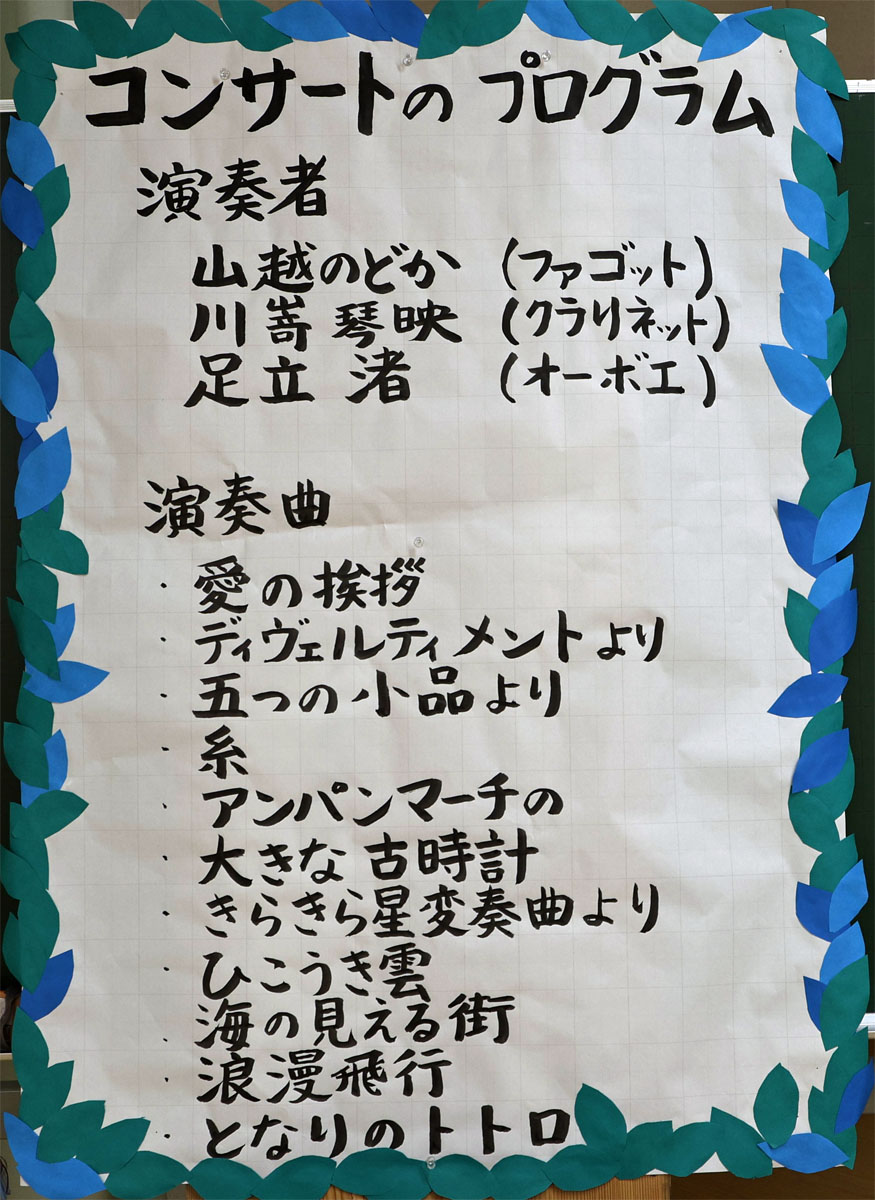 コンサートの プログラム
演奏者
山越のどか (ファゴット)
川嵜 琴映 (クラリネット)
足立 渚 (オーボエ)
演奏曲
・愛の挨拶
・ディヴェルティメントより
・五つの小品より
・糸
・アンパンマーチの
・大きな古時計
・きらきら星変奏曲より
・ひこうき雲
・海の見える街
・浪漫飛行
・となりのトトロ